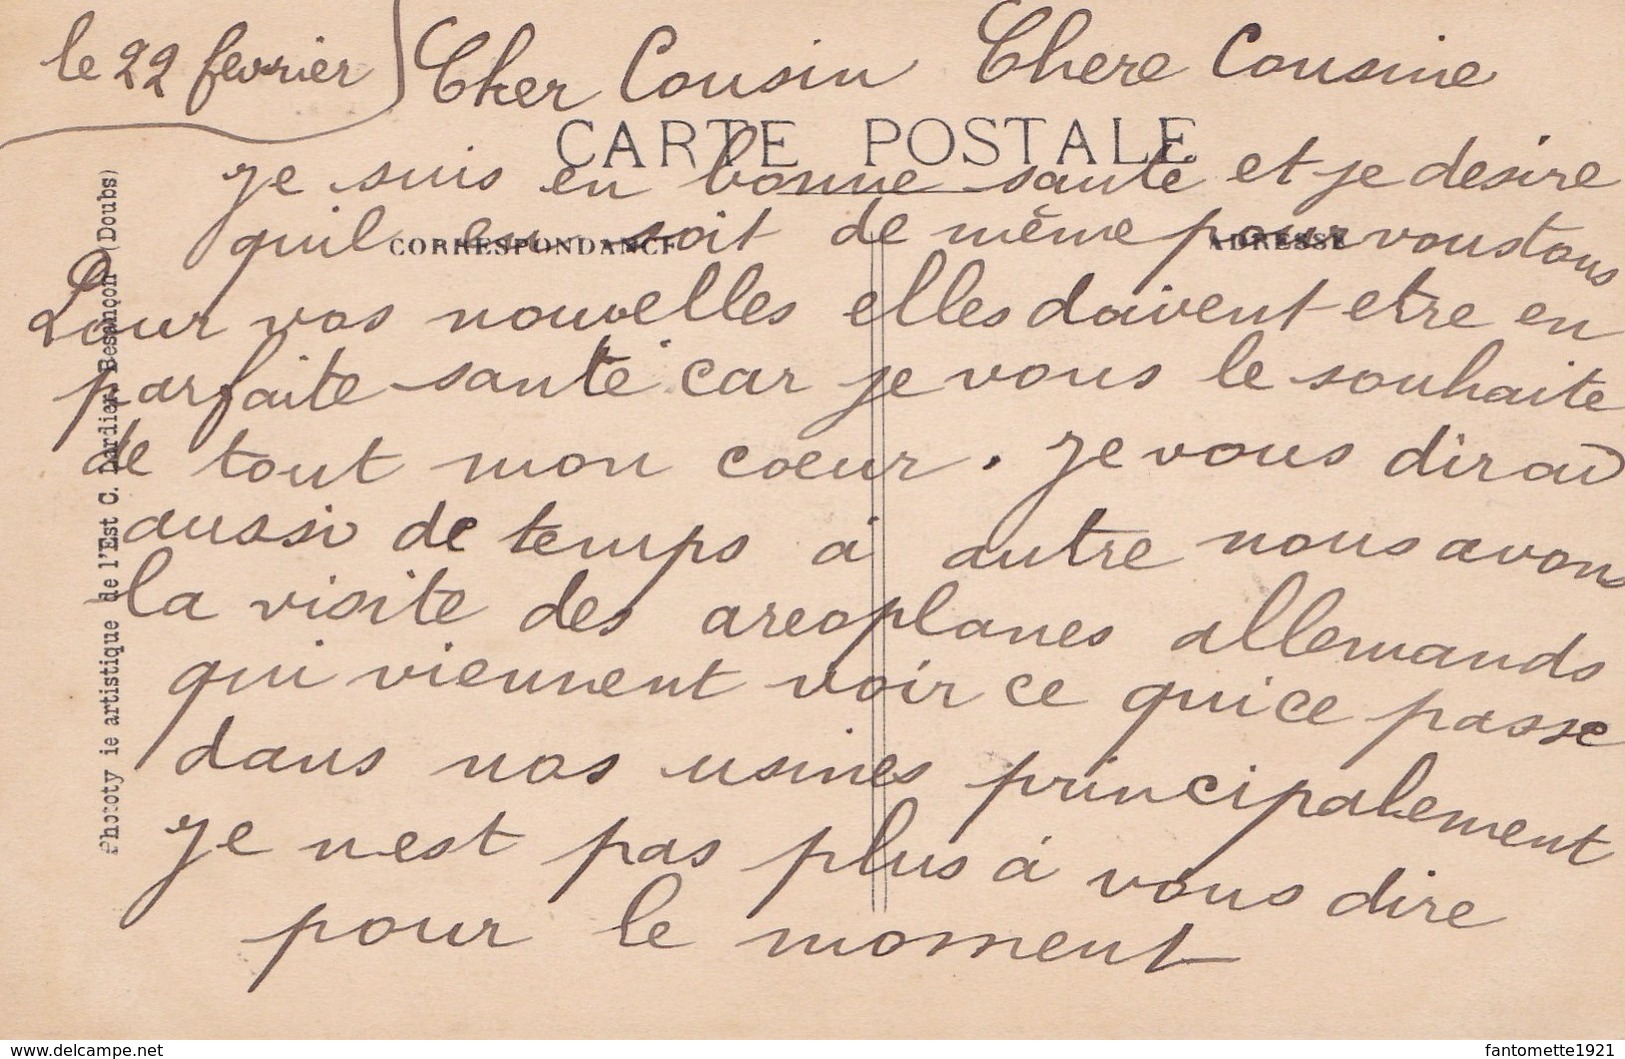 le 22 fevrier
Cher Cousin Chere Cousine
CARTE POSTALE
Je suis en bonne santé et je desire
CORRESPONDANCE
ADRESSE
quil en soit de même pour vous tous
Pour vos nouvelles elles doivent etre en
parfaite santé car je vous le souhaite
de tout mon coeur. Je vous dirai
aussi de temps à autre nous avons
la visite des areoplanes allemands
qui viennent voir ce qui ce passe
dans nos usines principalement
Je n'est pas plus à vous dire
pour le moment
Phototypie artistique de l'Est C. Lardier, Besançon (Doubs)
www.delcampe.net
fantomette1921